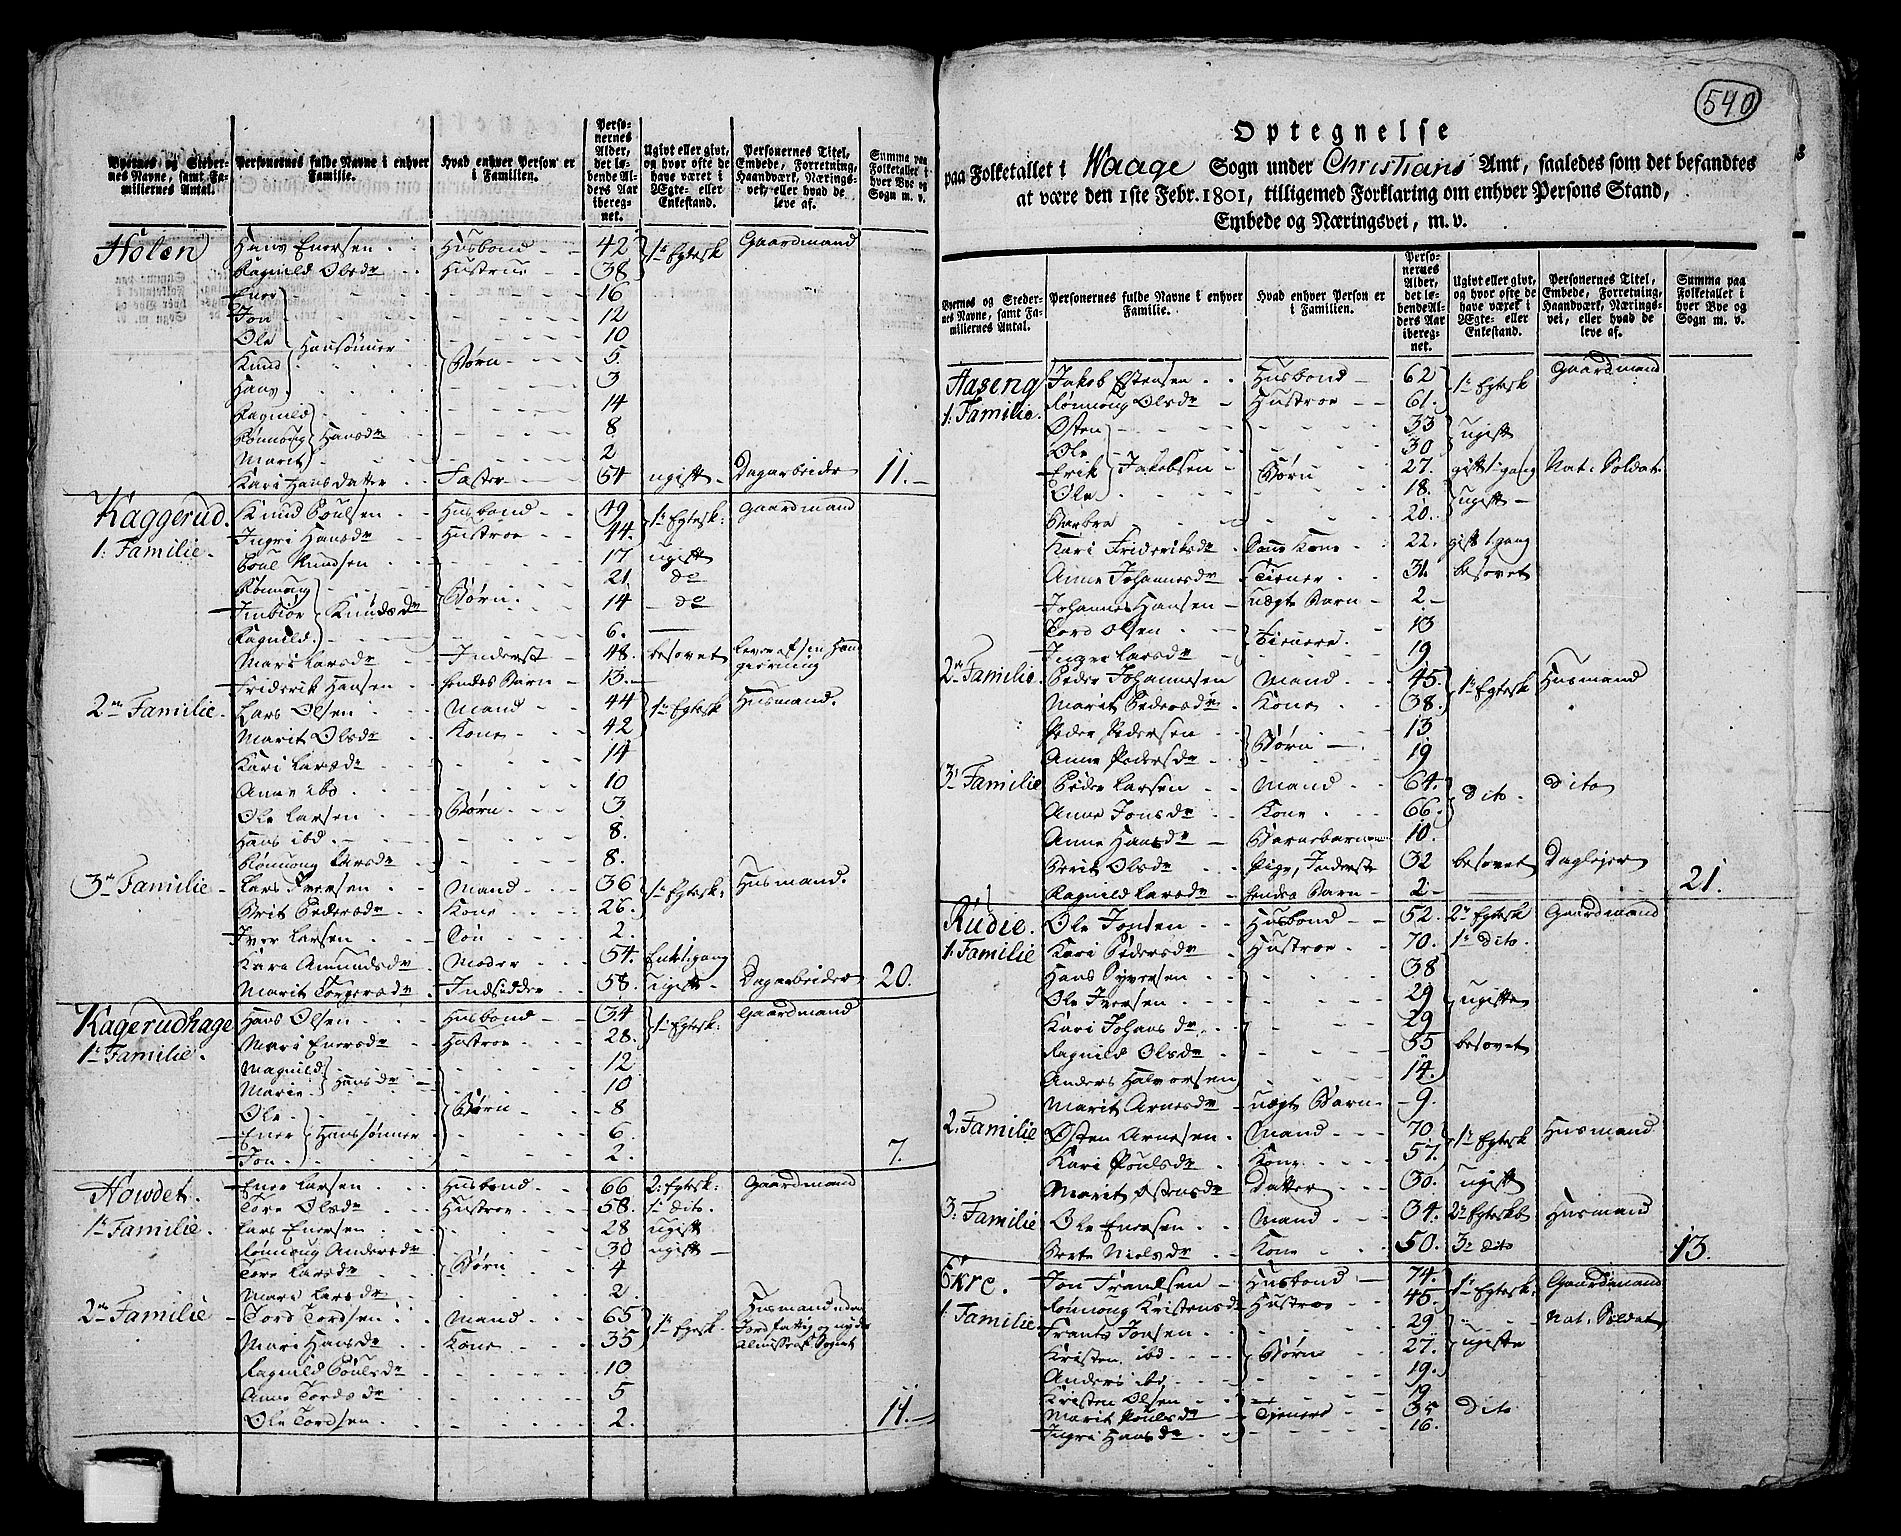 Byernes og Steder-
nes Navne, samt Fa-
miliernes Antal.
Personernes fulde Navne i enhver
Familie.
Hvad enhver Person er
i Familien.
Perso-
nernes
Alder,
det lø-
bende Al-
ders Aar
ibereg-
net.
Ugivt eller givt,
og hvor ofte de
have været i
Ægte- eller
Enkestand.
Personernes Titel,
Embede, Forretning,
Haandværk, Nærings-
vei, eller hvad de
leve af.
Summa paa
Folketallet i
hver Bye og
Sogn m. v.
Holen Hans Enersen Husbond 42 1te Egtesk Gaardmand
Ragnild Olsdr Hustrue 38
Ener 16
Jon 12
Ole Hansønner 10
Knud Børn 5
Hans 3
Ragnild 14
Rønnoug Hansdr 8
Marit 2
Kari Hansdatter Faster 54 ugift Dagarbeider 11.
Kaggerud Knud Poulsen Husbond 49 1te Egtesk: Gaardmand
1: Familie Ingri Hansdr Hustroe 44
Poul Knudsen 17 ugift
Rønnoug 21 do
Imbiør Knudsdr Børn 14 do
Ragnild 6.
Mari Larsdr Inderst 48. besovet lever af sin Haan
gierning
Friderik Hansen hendes Barn 13.
2den Familie Lars Olsen Mand 44 1te Egtesk Husmand.
Marit Olsdr Kone 42
Kari Larsdr 14
Anne ibd 10
Ole Larsen Børn 3
Hans ibd 8.
Rønnoug Larsdr 8.
3die Familie Lars Iversen Mand 36 1te Egtesk: Husmand.
Brit Pedersdr Kone 26.
Iver Larsen Søn 2.
Kari Amundsdr Moder 54. Enke 1 gang
Marit Torgersdr Indsidder 58. ugift Dagarbeider 20.
Kagerudhage Hans Olsen Husbond 34 1te Egtesk: Gaardmand
1te Familie. Mari Enersdr Hustroe 28.
Magnild 12
Marie Hansdr 10
Ole Børn 8
Ener Hanssønner 6.
Jon 2. 7.
Howdet. Ener Larsen Husbond 66 2: Egtesk: Gaardmand
1te Familie Tore Olsdr Hustroe 58. 1: dito.
Lars Enersen 28 ugift
Rønnoug Andersdr 30 ugift
Tore Larsdr Børn 4
Mari Larsdr 2.
2den Familie Tord Tordsen Mand 65 1te Egtesk Husmand uden
Mari Hansdr Kone 35 Jord fattig og nyder
Almisse af Sognet
Ragnild Poulsdr 10
Anne Tordsdr 5
Ole Tordsen 2. 11.
540
Optegnelse
paa Folketallet i Waage Sogn under Christians Amt, saaledes som det befandtes
at være den 1ste Febr. 1801, tilligemed Forklaring om enhver Persons Stand,
Embede og Næringsvei, m. v.
Byernes og Steder-
nes Navne, samt Fa-
miliernes Antal.
Personernes fulde Navne i enhver
Familie.
Hvad enhver Person er
i Familien.
Perso-
nernes
Alder,
det lø-
bende Al-
ders Aar
ibereg-
net.
Ugivt eller givt,
og hvor ofte de
have været i
Ægte- eller
Enkestand.
Personernes Titel,
Embede, Forretning,
Haandværk, Nærings-
vei, eller hvad de
leve af.
Summa paa
Folketallet i
hver Bye og
Sogn m. v.
Haseng Jakob Estensen Husbond 62 1te Egtesk Gaardmand
1: Familie. Rønnoug Olsdr Hustroe 61.
Østen 33 ugift
Ole 30
Erik Jakobsen Børn 27. gift 1 gang Nat: Soldat
Ole 18. ugift
Barbra 20.
Kari Frideriksdr Sønne Kone 22. gift 1 gang
Anne Johannesdr Tiener 31. besovet
Johannes Hansen uægte Barn 2
Tord Olsen Tienere 13
Inger Larsdr 19
2den Familie. Peder Johannesen Mand 45. 1te Egtesk Husmand
Marit Pedersdr Kone 38.
Peder Pedersen Børn 13
Anne Pedersdr 19
3die Familie Peder Larsen Mand 64. dito. dito
Anne Jonsdr Kone 66.
Anne Hansdr Barnebarn 10.
Berit Olsdr Pige, Inderste 32 besovet Daglejer
Ragnild Larsdr hendes Barn 2 21.
Rudie. Ole Jonsen Husbond 52. 2den Egtesk Gaardmand
1: Familie Kari Pedersdr Hustroe 70. 1te dito.
Hans Syversen 38
Ole Iversen 29 ugifte
Kari Johansdr 29
Ragnild Olsdr 35 besovet
Anders Halvorsen 14.
Marit Arnesdr uægte Barn 9.
2. Familie Østen Arnesen Mand 70. 1te Egtesk Husmand
Kari Poulsdr Kone 57.
Marit Østensdr Datter 30. ugift
3: Familie Ole Enersen Mand 34. 2den Egtesk Husmand
Berte Nielsdr Kone 50. 3die dito 13.
Ekre. Jon Frandsen Husbond 74. 1te Egtesk: Gaardmand
1 Familie Rønnoug Kristensdr Hustroe 45.
Frants Jonsen 29 Nat: Soldat
Kristen ibd Børn 27. ugifte
Anders ibd 19.
Kristen Olsen 19
Marit Poulsdr Tjenere 35 dito
Ingri Hansdr 16.